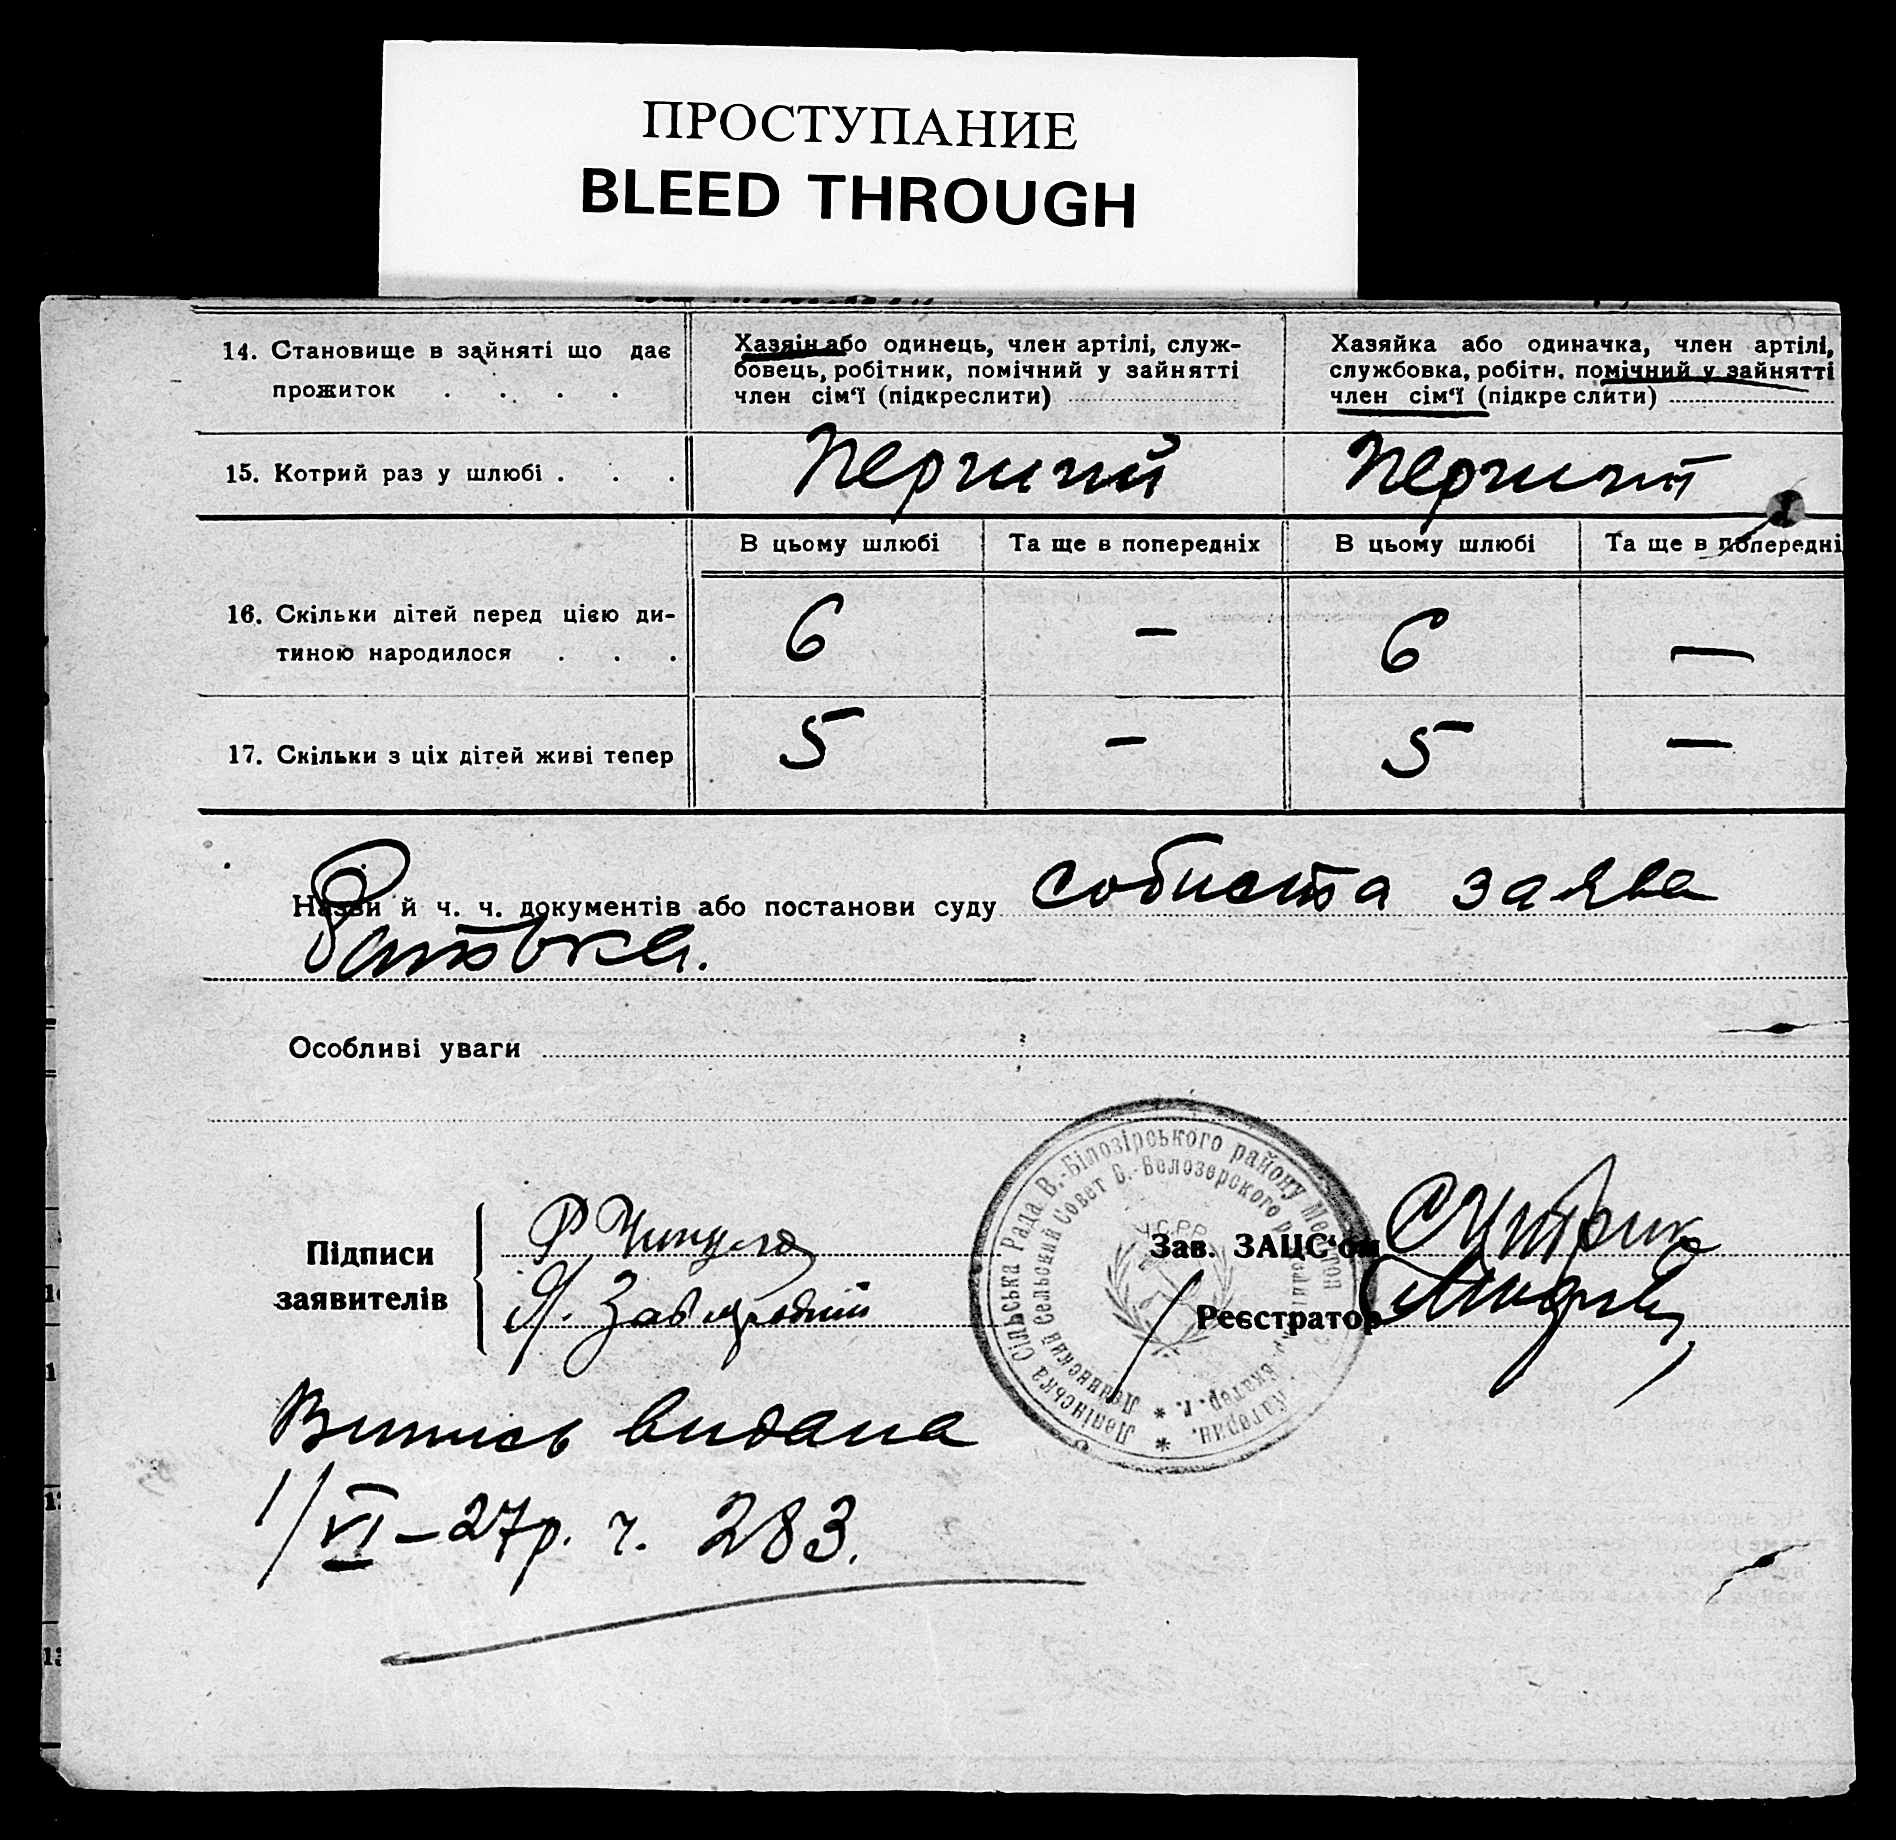 ПРОСТУПАНИЕ
BLEED THROUGH
14. Становище в зайняті що дає
прожиток . . . .
Хазяін або одинець, член артілі, служ-
бовець, робітник, помічний у зайнятті
член сім‘ї (підкреслити)
Хазяйка або одиначка, член артілі,
службовка, робітн. помічний у зайнятті
член сім‘ї (підкреслити)
15. Котрий раз у шлюбі . . .
перший
перший
В цьому шлюбі
Та ще в попередніх
В цьому шлюбі
Та ще в попередні
16. Скільки дітей перед цією ди-
тиною народилося . . .
6
-
6
-
17. Скільки з ціх дітей живі тепер
5
-
5
-
Назви й ч. ч. документів або постанови суду собиста заява
Батька.
Особливі уваги
Підписи
заявителів
Зав. ЗАЦС‘ом
Реєстратор
Ленінська Сільська Рада В.-Білозірського району
Ленинский Сельский Совет В.-Белозерского
Випись видана
1/VI-27р. ч. 283.